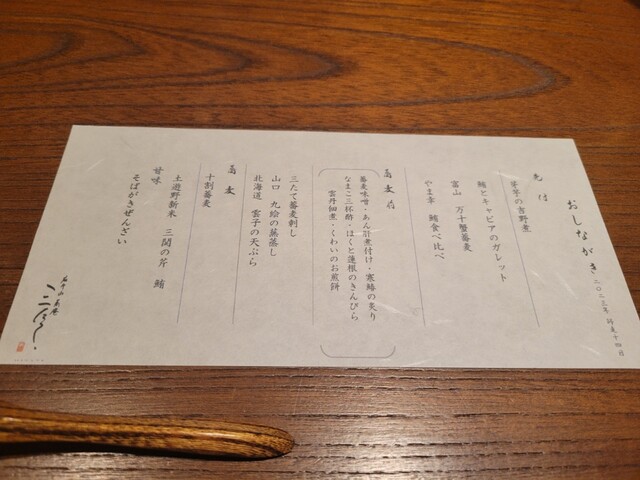 おしながき
二〇二三年 師走十四日
先付
芽芋の吉野煮
鮪とキャビアのガレット
富山 万十蟹蕎麦
やま幸 鮪食べ比べ
蕎麦前
蕎麦味噌・あん肝煮付け・寒鰆の炙り
なまこ三杯酢・ほくと蓮根のきんぴら
雲丹佃煮・くわいのお煎餅
三たて蕎麦刺し
山口 九絵の蕪蒸し
北海道 雲子の天ぷら
蕎麦
十割蕎麦
土遊野新米 三関の芹 鮪
甘味
そばがきぜんざい